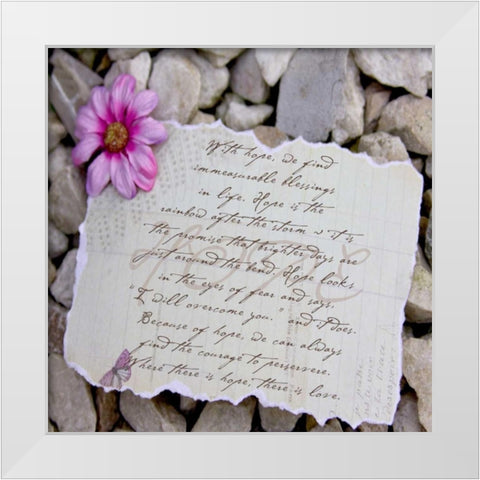 With hope, we find
immeasurable blessings
in life. Hope is the
rainbow after the storm ~ it is
the promise that brighter days are
just around the bend. Hope looks
in the eyes of fear and says,
"I will overcome you." and it does.
Because of hope, we can always
find the courage to perservere.
Where there is hope, there is love.